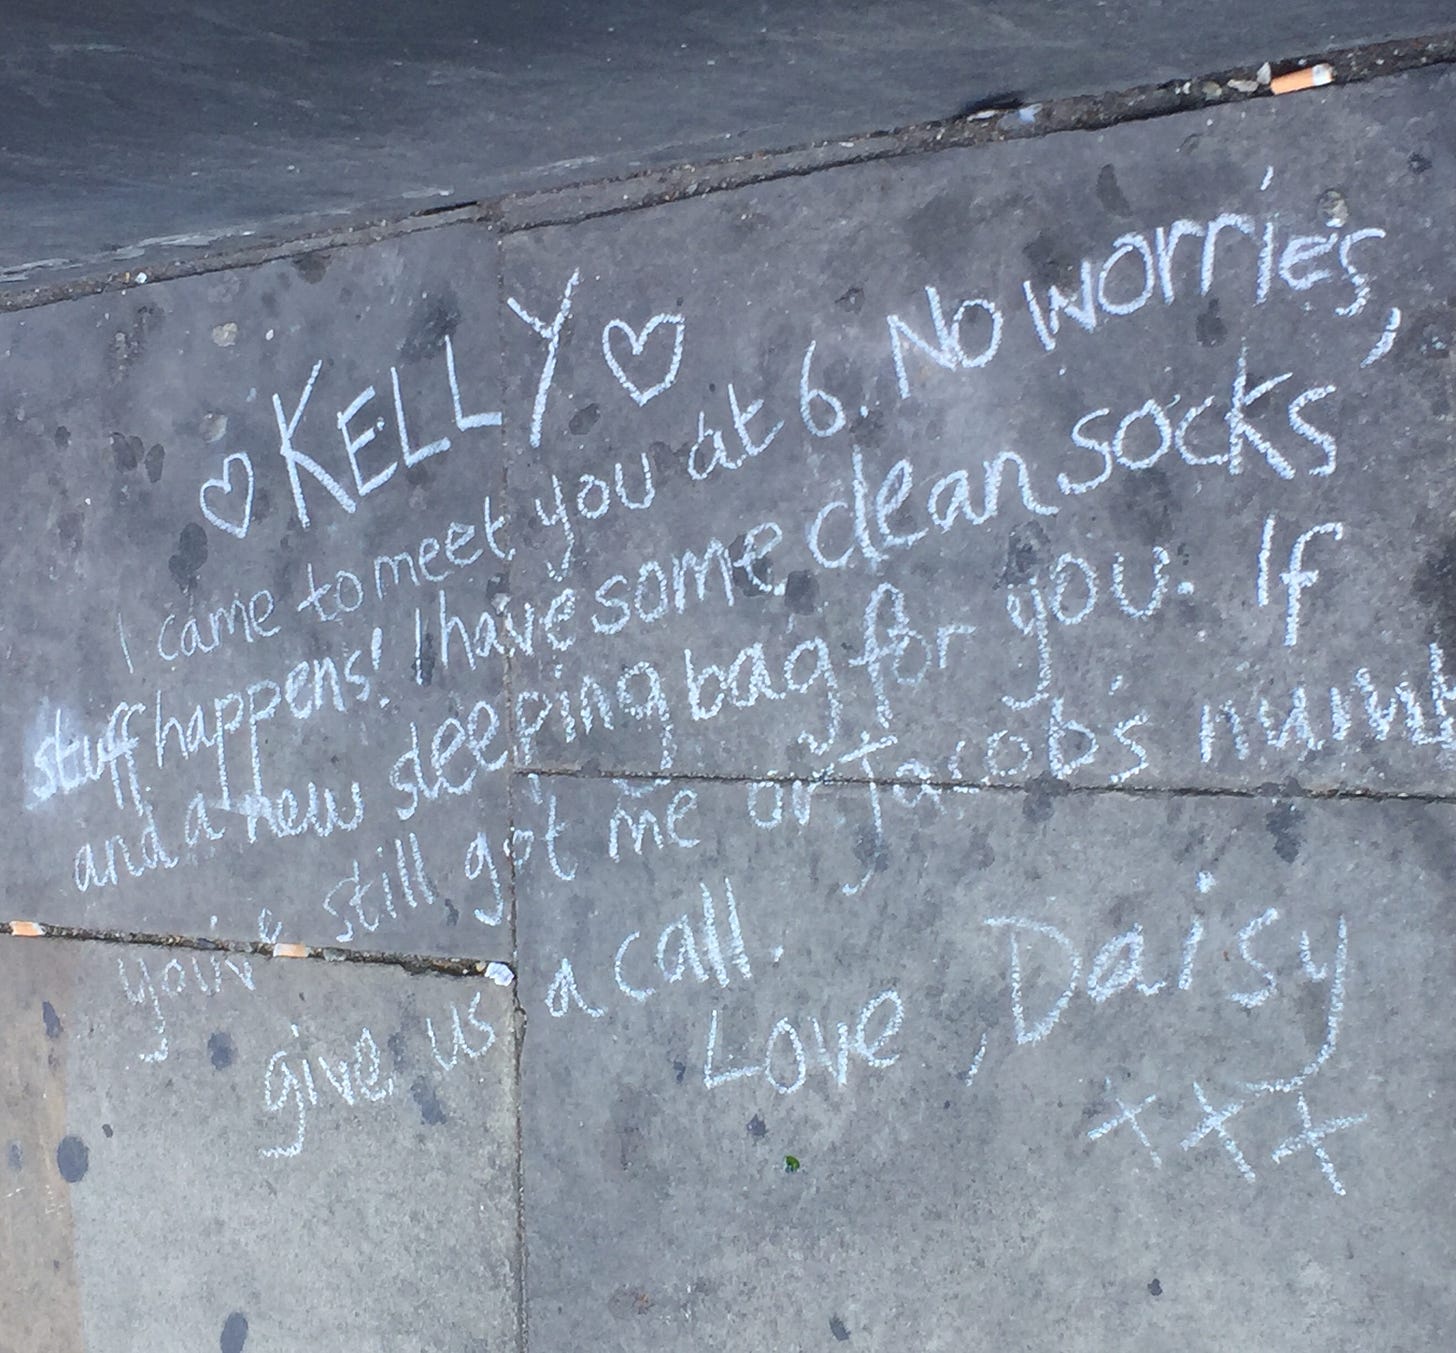 ♡KELLY♡
I came to meet you at 6. No worries,
stuff happens! I have some clean socks
and a new sleeping bag for you. If
still got me or Jacob's
give us a call.
Love, Daisy
xxx